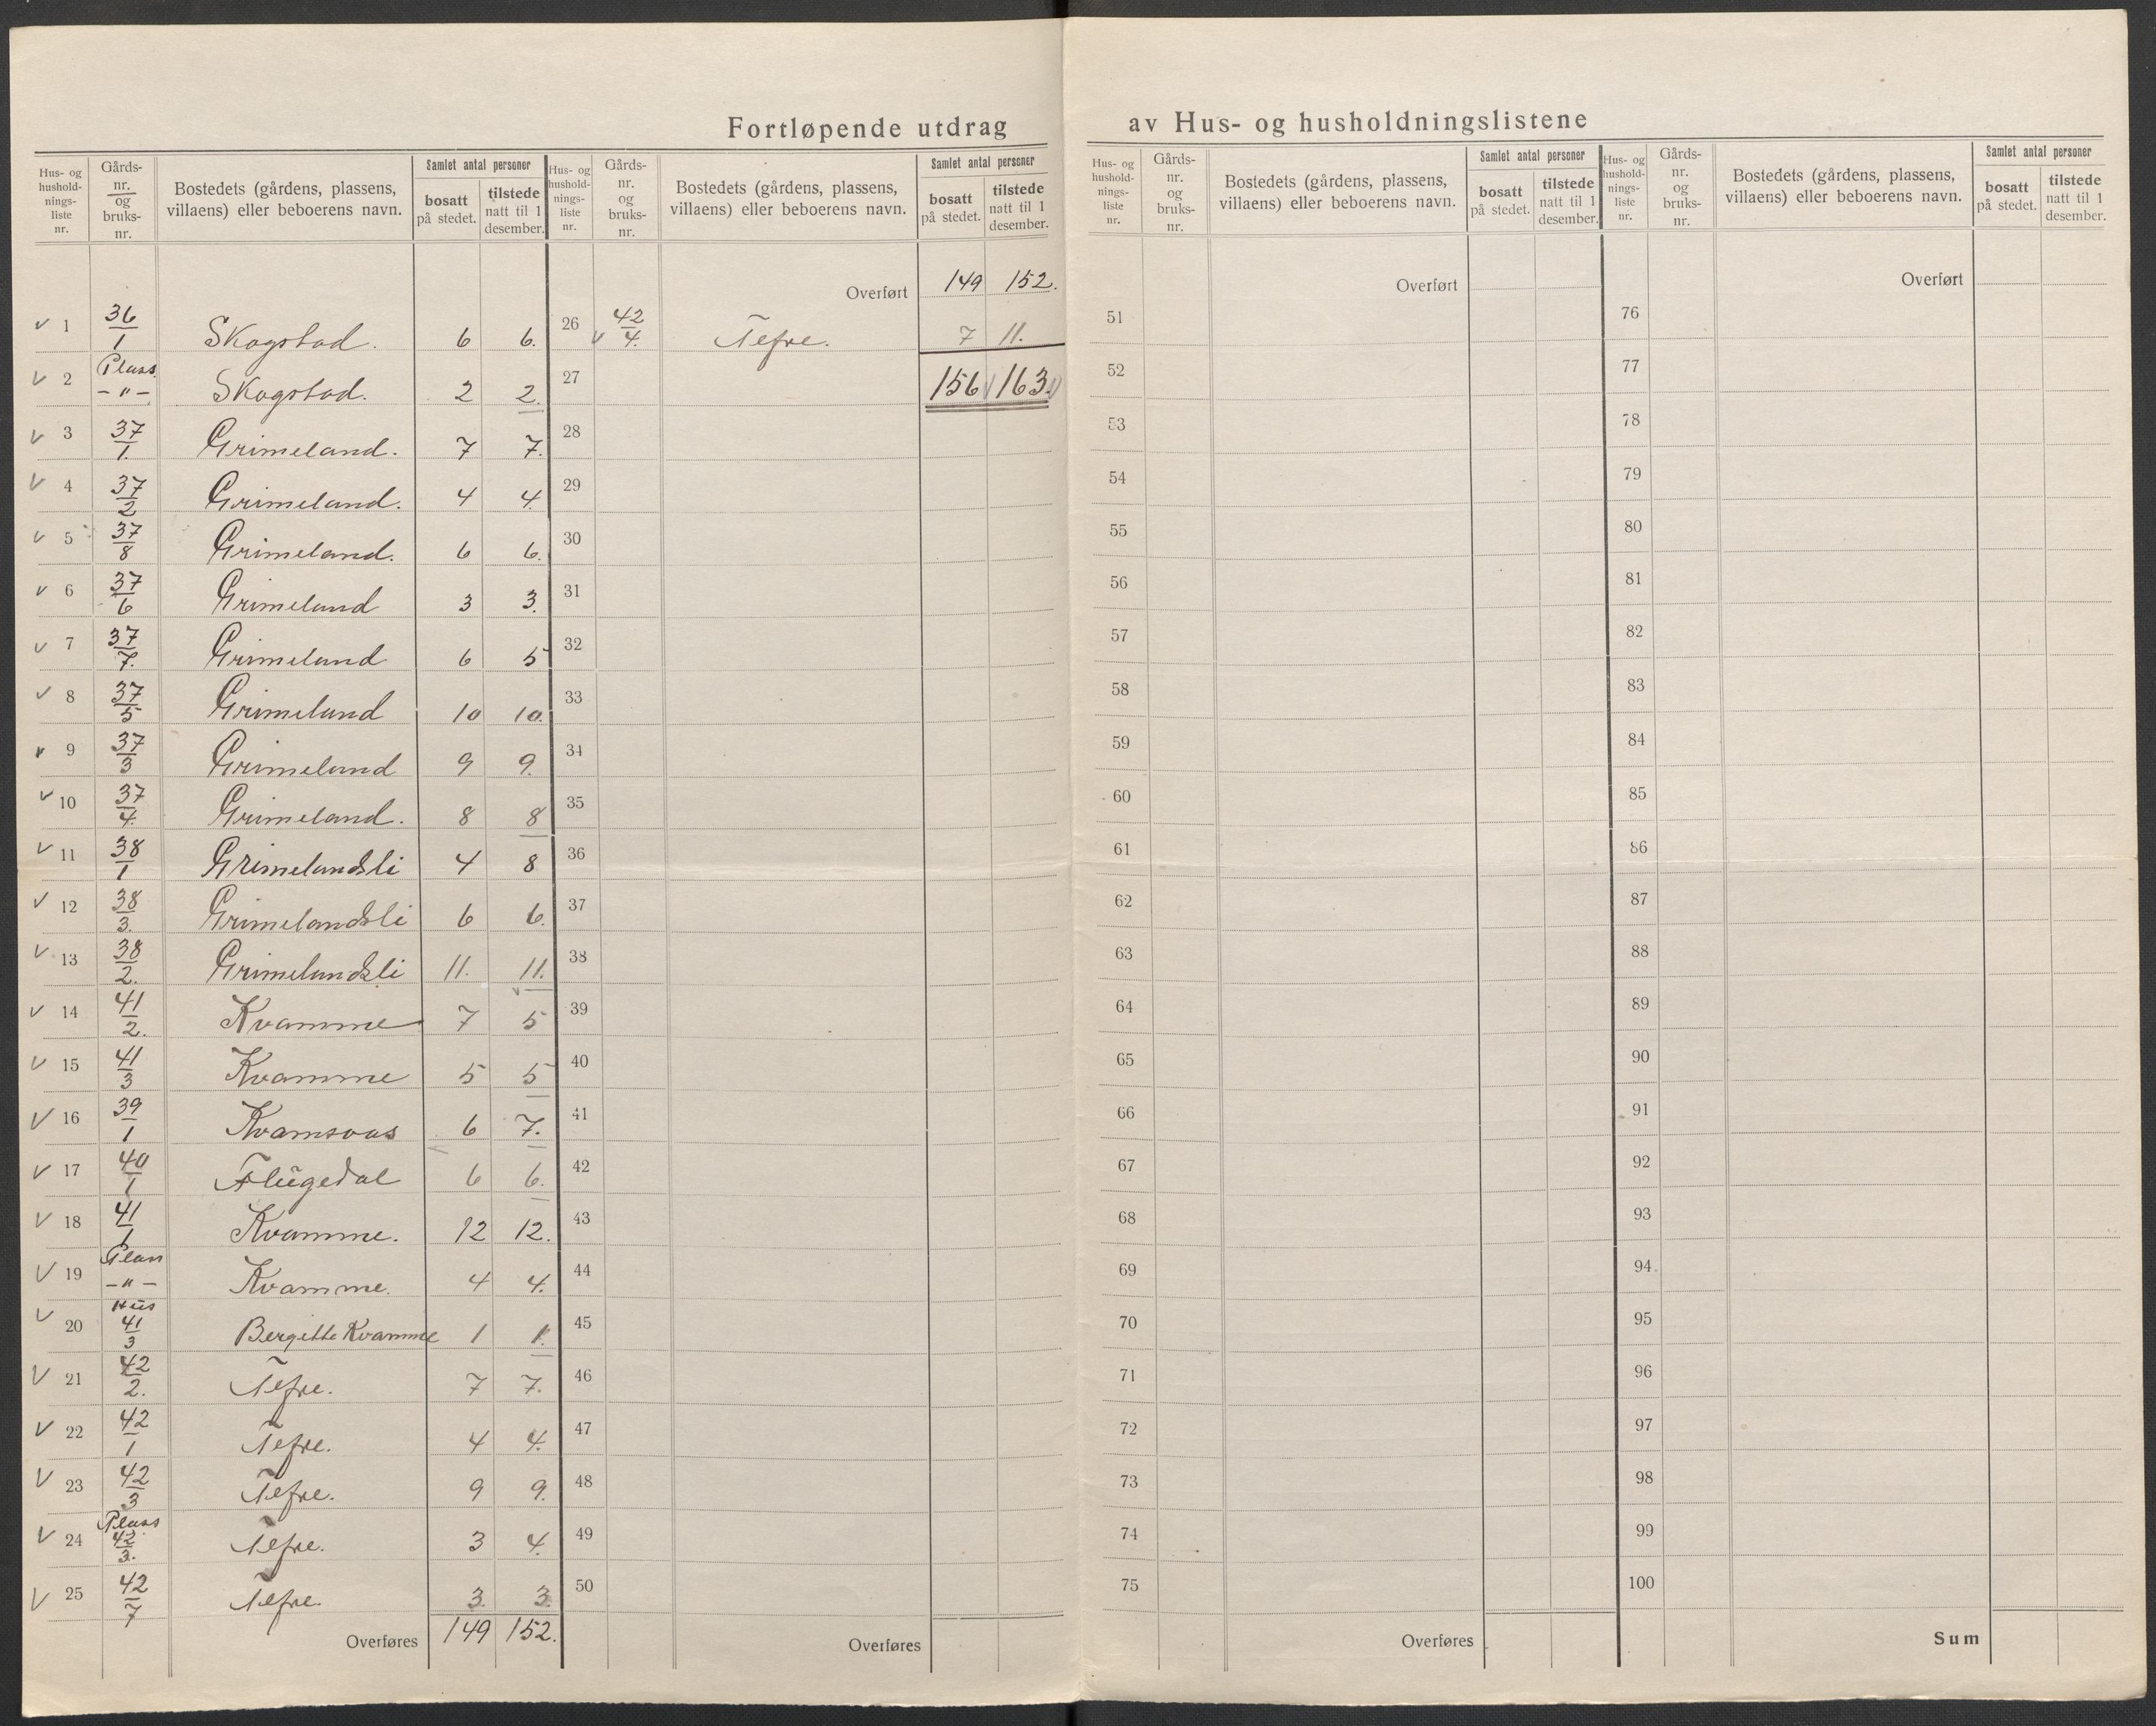 Fortløpende utdrag av Hus- og husholdningslistene
Hus- og hushold- nings- liste nr. | Gårds- nr. og bruks- nr. | Bostedets (gårdens, plassens, villaens) eller beboerens navn. | Samlet antal personer | bosatt på stedet. | tilstede natt til 1 desember.
Hus- og hushold- nings- liste nr. | Gårds- nr. og bruks- nr. | Bostedets (gårdens, plassens, villaens) eller beboerens navn. | Samlet antal personer | bosatt på stedet. | tilstede natt til 1 desember.
Hus- og hushold- nings- liste nr. | Gårds- nr. og bruks- nr. | Bostedets (gårdens, plassens, villaens) eller beboerens navn. | Samlet antal personer | bosatt på stedet. | tilstede natt til 1 desember.
Hus- og hushold- nings- liste nr. | Gårds- nr. og bruks- nr. | Bostedets (gårdens, plassens, villaens) eller beboerens navn. | Samlet antal personer | bosatt på stedet. | tilstede natt til 1 desember.
v 1 36/1 Skogstad. 6 6.
v 2 Plass -"- Skogstad. 2 2.
v 3 37/1. Grimeland. 7 7.
v 4 37/2 Grimeland. 4 4.
v 5 37/8 Grimeland. 6 6.
v 6 37/6 Grimeland 3 3.
v 7 37/7. Grimeland 6 5
v 8 37/5 Grimeland 10 10.
v 9 37/3 Grimeland 9 9.
v 10 37/4. Grimeland. 8 8
v 11 38/1 Grimelandsli 4 8
v 12 38/3. Grimelandsli 6 6.
v 13 38/2. Grimelandsli 11. 11.
v 14 41/2. Kvamme 7 5
v 15 41/3 Kvamme 5 5
v 16 39/1 Kvamsoas 6 7.
v 17 40/1 Flügedal 6 6.
v 18 41/1 Kvamme. 12 12.
v 19 Plass -"- Kvamme. 4 4.
v 20 Hüs 41/3 Bergitte Kvamme 1 1.
v 21 42/2. Tefre. 7 7.
v 22 42/1 Tefre. 4 4.
v 23 42/3 Tefre. 9 9.
v 24 Plass 42/3. Tefre. 3 4.
v 25 42/7 Tefre. 3. 3.
Overføres 149 152.
Overført 149 152.
26 v 42/4. Tefre. 7 11.
27 156 v 163. v
28
29
30
31
32
33
34
35
36
37
38
39
40
41
42
43
44
45
46
47
48
49
50
Overføres
Overført
51
52
53
54
55
56
57
58
59
60
61
62
63
64
65
66
67
68
69
70
71
72
73
74
75
Overføres
Overført
76
77
78
79
80
81
82
83
84
85
86
87
88
89
90
91
92
93
94
95
96
97
98
99
100
Sum